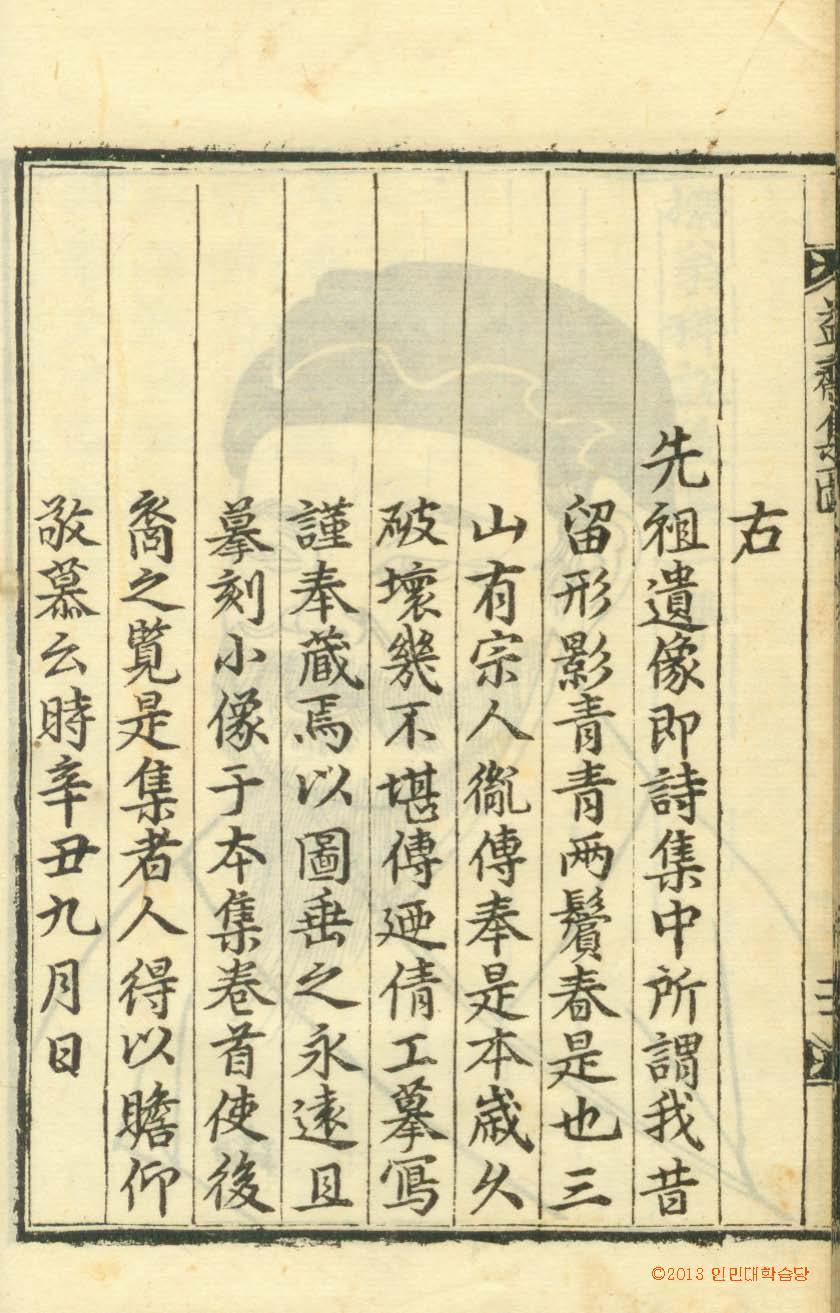 右
先祖遺像即詩集中所謂我昔
留形影青青両鬢春是也三
山有宗人胤傳奉是本歳久
破壞幾不堪傳廼倩工摹寫
謹奉蔵焉以圖垂之永遠且
摹刻小像于本集卷首使後
裔之覧是集者人得以瞻仰
敬慕云時辛丑九月日
益齋集
©2013 인민대학습당